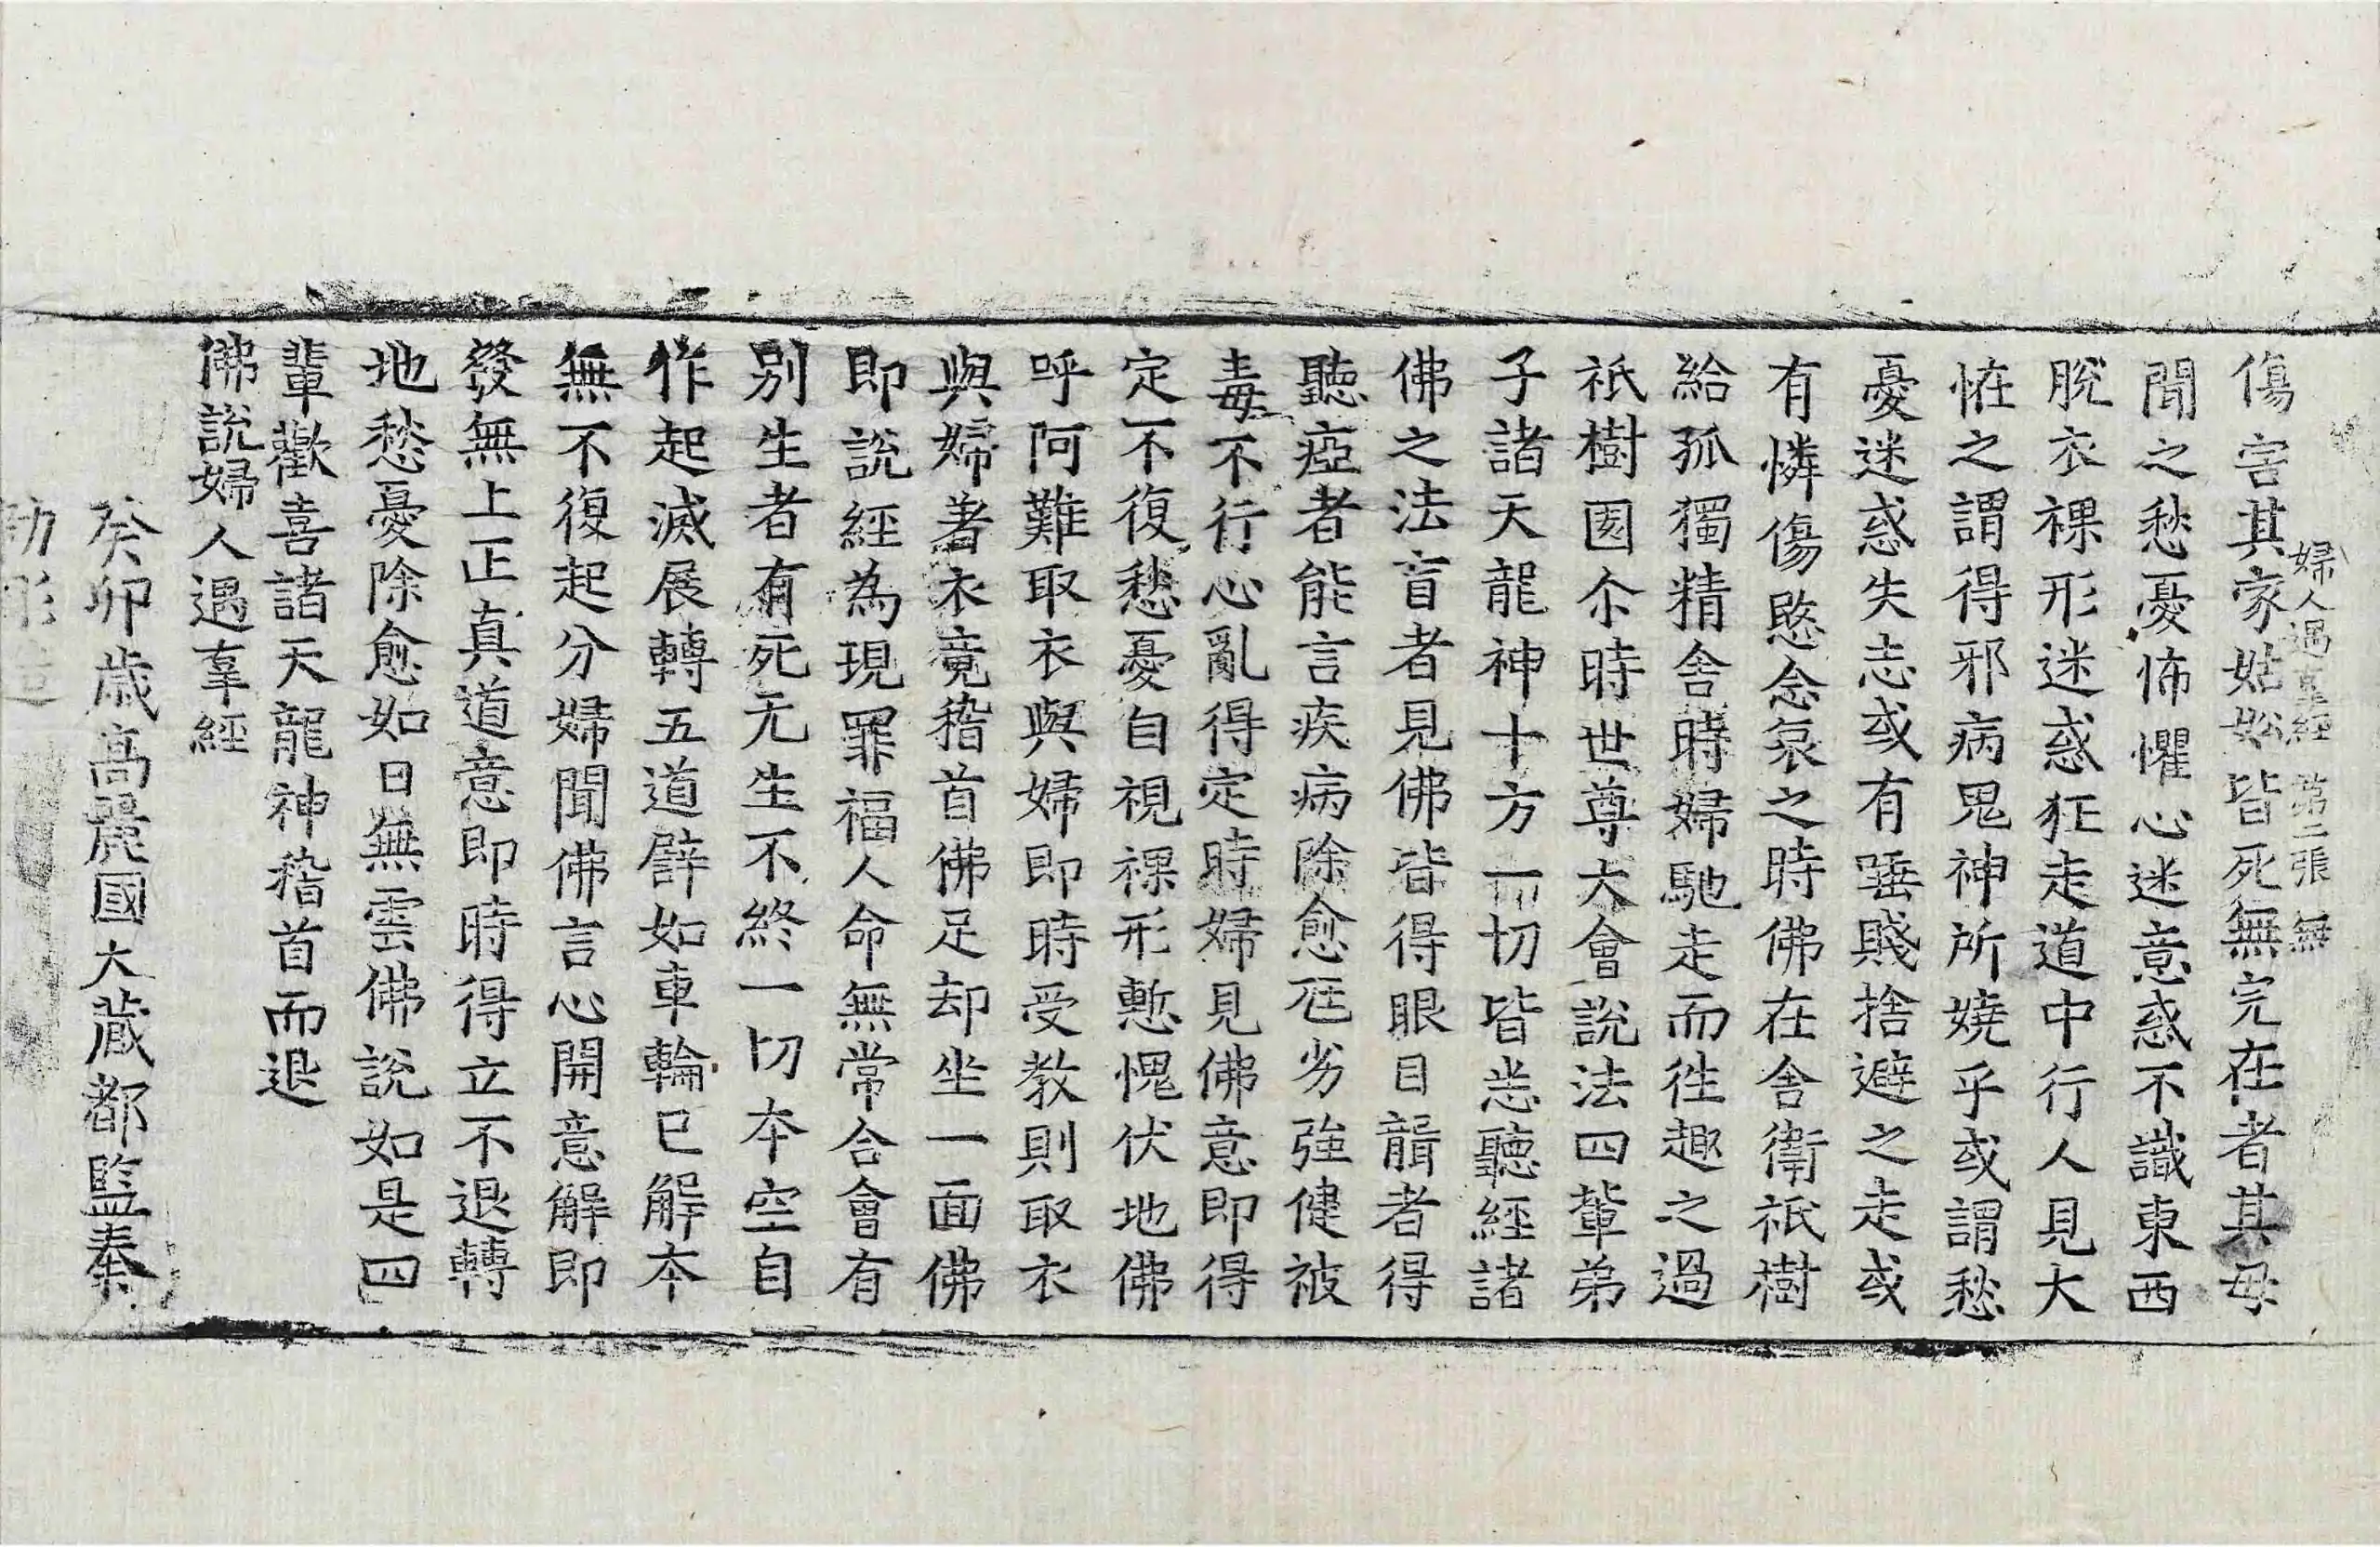 婦人遇辜經 第二張 無
傷害其家姑妐皆死無完在者其母
聞之愁憂怖懼心迷意惑不識東西
脫衣裸形迷惑狂走道中行人見大
恠之謂得邪病鬼神所嬈乎或謂愁
憂迷惑失志或有唾賤捨避之走或
有憐傷愍念哀之時佛在舍衛祇樹
給孤獨精舍時婦馳走而往趣之過
祇樹園尒時世尊大會說法四輩弟
子諸天龍神十方一切皆悉聽經諸
佛之法盲者見佛皆得眼目聾者得
聽瘂者能言疾病除愈尫劣強健被
毒不行心亂得定時婦見佛意即得
定不復愁憂自視裸形慙愧伏地佛
呼阿難取衣與婦即時受教則取衣
與婦著衣竟稽首佛足却坐一面佛
即說經為現罪福人命無常合會有
別生者有死无生不終一切本空自
作起滅展轉五道譬如車輪已解本
無不復起分婦聞佛言心開意解即
發無上正真道意即時得立不退轉
地愁憂除愈如日無雲佛說如是四
輩歡喜諸天龍神稽首而退
佛說婦人遇辜經
癸卯歲高麗國大藏都監奉
勅彫造